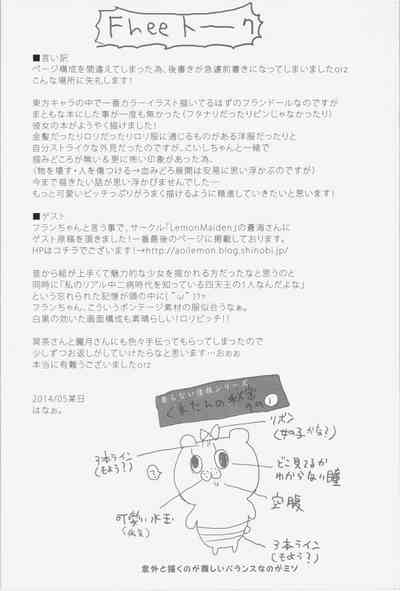 Fheeトーク
■言い訳
ページ構成を間違えてしまった為、後書きが急遽前書きになってしまいましたorz
こんな場所に失礼します!
東方キャラの中で一番カラーイラスト描いてるはずのフランドールなのですが
まともな本にした事が一度も無かった(フタナリだったりピンじゃなかったり)
彼女の本がようやく描けました!
金髪だったりロリだったりロリ服に通じるものがある洋服だったりと
自分ストライクな外見だったのですが、こいしちゃんと一緒で
掴みどころが無い&更に怖い印象があった為、
(物を壊す・人を傷つける→血みどろ展開は安易に思い浮かぶのですが)
今まで描きたい話が思い浮かびませんでした…
もっと可愛いビッチっぷりがうまく描けるように精進していきたいと思います!
■ゲスト
フランちゃんと言う事で、サークル「LemonMaiden」の蒼海さんに
ゲスト原稿を頂きました!一番最後のページに掲載しております。
HPはコチラでございます!→http://aoilemon.blog.shinobi.jp/
昔から絵が上手くて魅力的な少女を描かれる方だったなと思うのと
同時に「私のリアル中二病時代を知っている四天王の1人なんだよな」
という忘れられた記憶が頭の中に(^ω^)ｸﾞｯ
フランちゃん、こういうボンテージ素材の服似合うなぁ。
白黒の効いた画面構成も素晴らしい!ロリビッチ!!
冥茶さんと朧月さんにも色々手伝ってもらってしまったので
少しずつお返ししがしていけたらなと思います…おぉぉ
本当に有難うございましたorz
2014/05某日
はなぉ。
要らない生技シリーズ
くまたんの秘密
その1
リボン
(女の子かな?)
3本ライン
(もよう?)
どこ見てるか
わからない瞳
空腹
可愛い水玉
3本ライン
(もよう?)
意外と描くのが難しいバランスなのがミソ